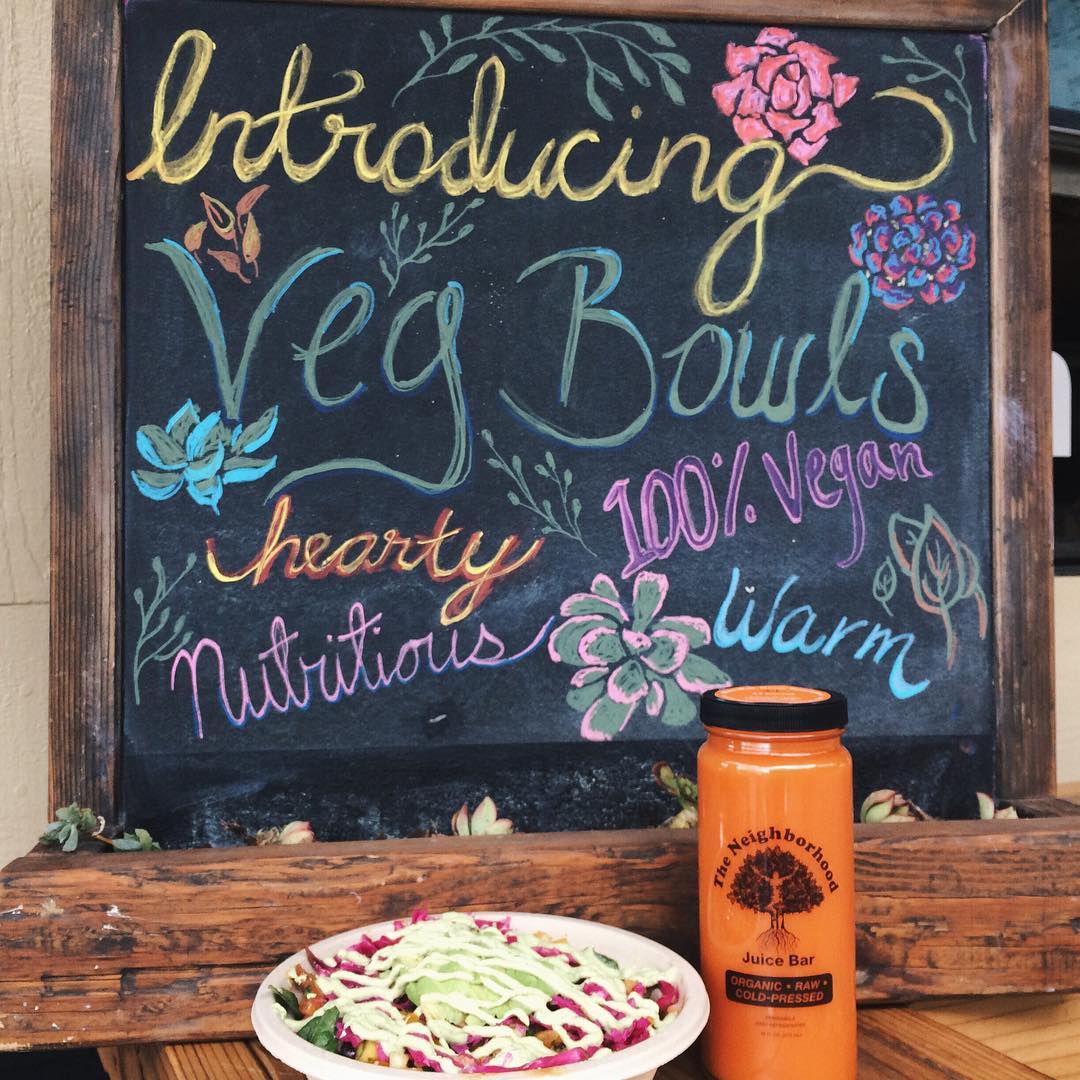 Introducing
Veg Bowls
100% Vegan
hearty
Warm
Nutritious
The Neighborhood
Juice Bar
ORGANIC • RAW •
COLD-PRESSED